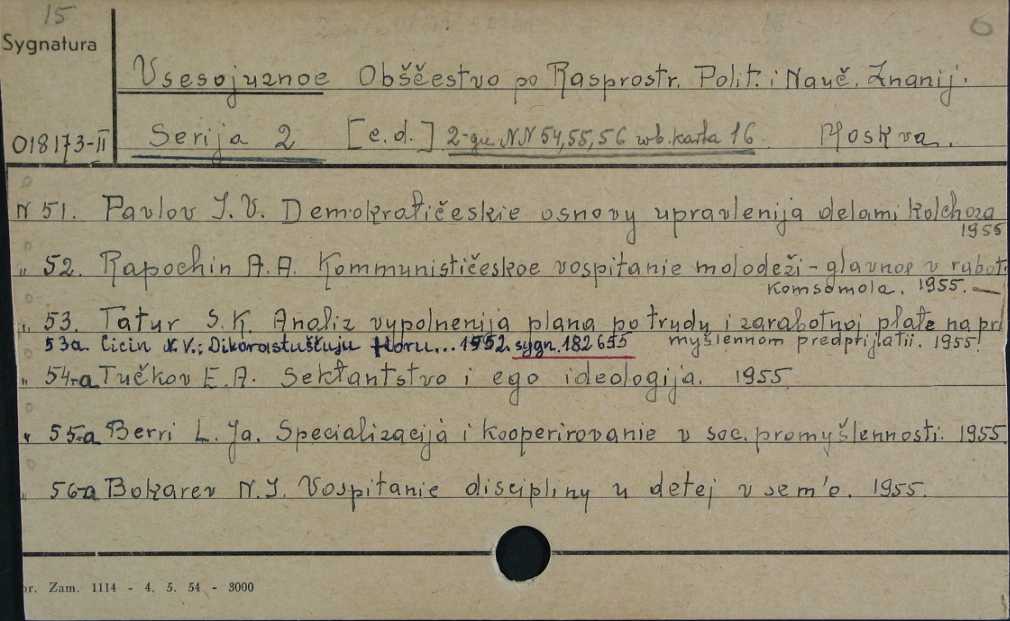 15
6
Sygnatura
Vsesojuznoe Obščestvo po Rasprostr. Polit. i Nauč. Znanij.
018173-II Serija 2 [c.d.] 2-gie NN 54,55,56 wb. karta 16 Moskva.
N 51. Pavlov I. V. Demokratičeskie osnovy upravlenija delami kolchoza
1955
„ 52. Rapochin A. A. Kommunističeskoe vospitanie molodeži - glavnoe v rabot.
komsomola. 1955.
„ 53. Tatur S. K. Analiz vypolnenija plana po trudu i zarabotnoj plate na pro
myšlennom predprijatii. 1955.
53a. Cicin N. V.: Dikorastuščuju floru... 1952. sygn. 182655
„ 54-a Tučkov E. A. Sektantstvo i ego ideologija. 1955.
„ 55-a Berri L. Ja. Specializacija i kooperirovanie v soc. promyšlennosti. 1955.
„ 56-a Bokarev N. I. Vospitanie discipliny u detej v sem'e. 1955.
Zam. 1114 - 4. 5. 54 - 3000